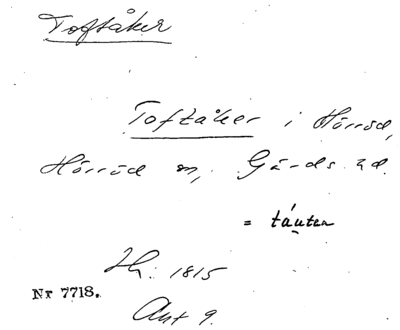 Toftåker
Toftåker i Hörröd,
Hörröd sn, Gärds hd.
= táuten
Lh. 1815
Nr 7718.
Akt 9.